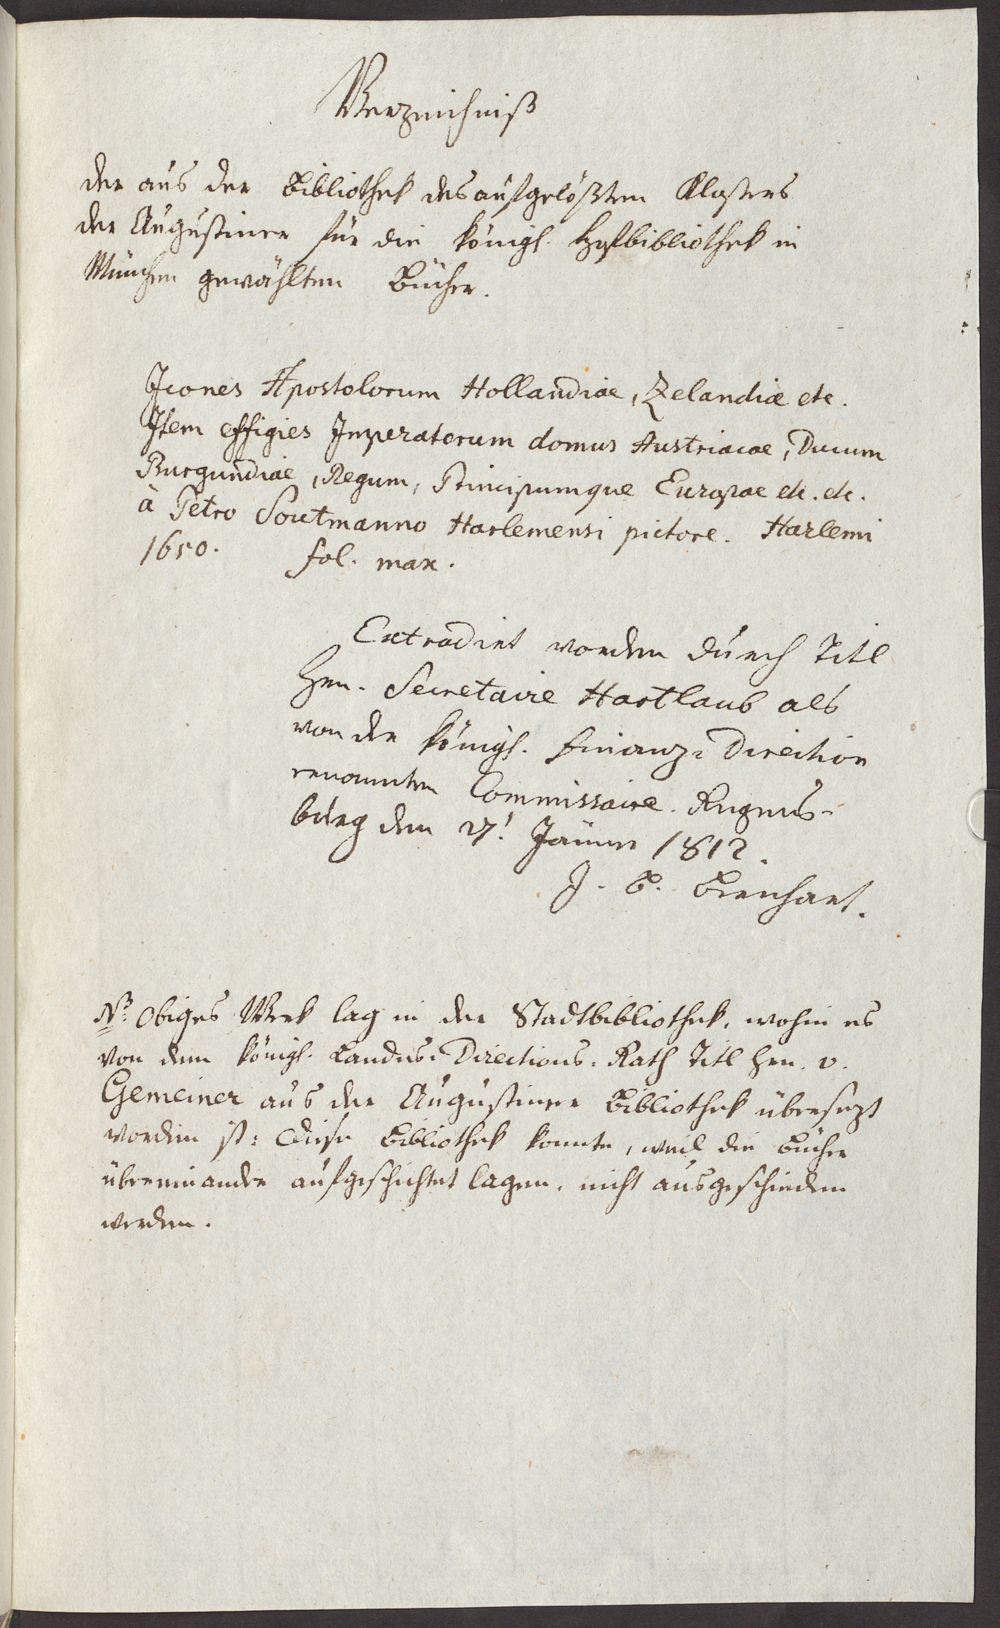 Verzeichniß
der aus der Bibliothek des aufgelößten Klosters
der Augustiner für die königl. Hofbibliothek in
München gewählten Bücher.
Icones Apostolorum Hollandiae, Zelandiae etc.
Item effigies Imperatorum domus Austriacae, Ducum
Burgundiae, Regum, Principumque Europae etc. etc.
à Petro Soutmanno Harlemensi pictore. Harlemi
1650. fol. max.
Extradirt worden durch Titl
Hrn. Secretaire Hartlaub als
von der königl. Finanz-Direction
ernannten Commissaire. Regens-
burg den 27t Jäner 1812.
J. B. Bernhart.
NB. Obiges Werk lag in der Stadtbibliothek, wohin es
von dem königl. Landes-Directions-Rath Titl Hrn. v.
Gemeiner aus der Augustiner Bibliothek übersezt
worden ist: diese Bibliothek konnte, weil die Bücher
übereinander aufgeschichtet lagen, nicht ausgeschieden
werden.